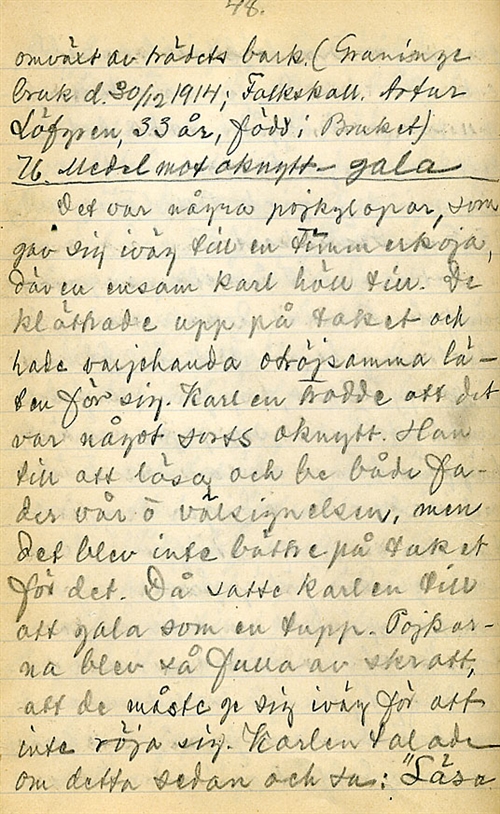 48.
omväxt av trädets bark. (Graninge
bruk d. 30/12 1914; Folkskoll. Artur
Löfgren, 33 år, född i Bruket)
76. Medel mot oknytt - gala
Det var några pojkglopar, som
gav sig iväg till en Timmerkoja,
där en ensam karl höll till. De
klättrade upp på taket och
hade varjehanda otröjsamma lä-
ten för sig. Karlen trodde att det
var något sorts oknytt. Han
till att läsa och be både Fa-
der vår ö välsignelsen, men
det blev inte bättre på taket
för det. Då satte karlen till
att gala som en tupp. Pojkar-
na blev så fulla av skratt,
att de måste ge sig iväg för att
inte röja sig. Karlen talade
om detta sedan och sa: "Läsa